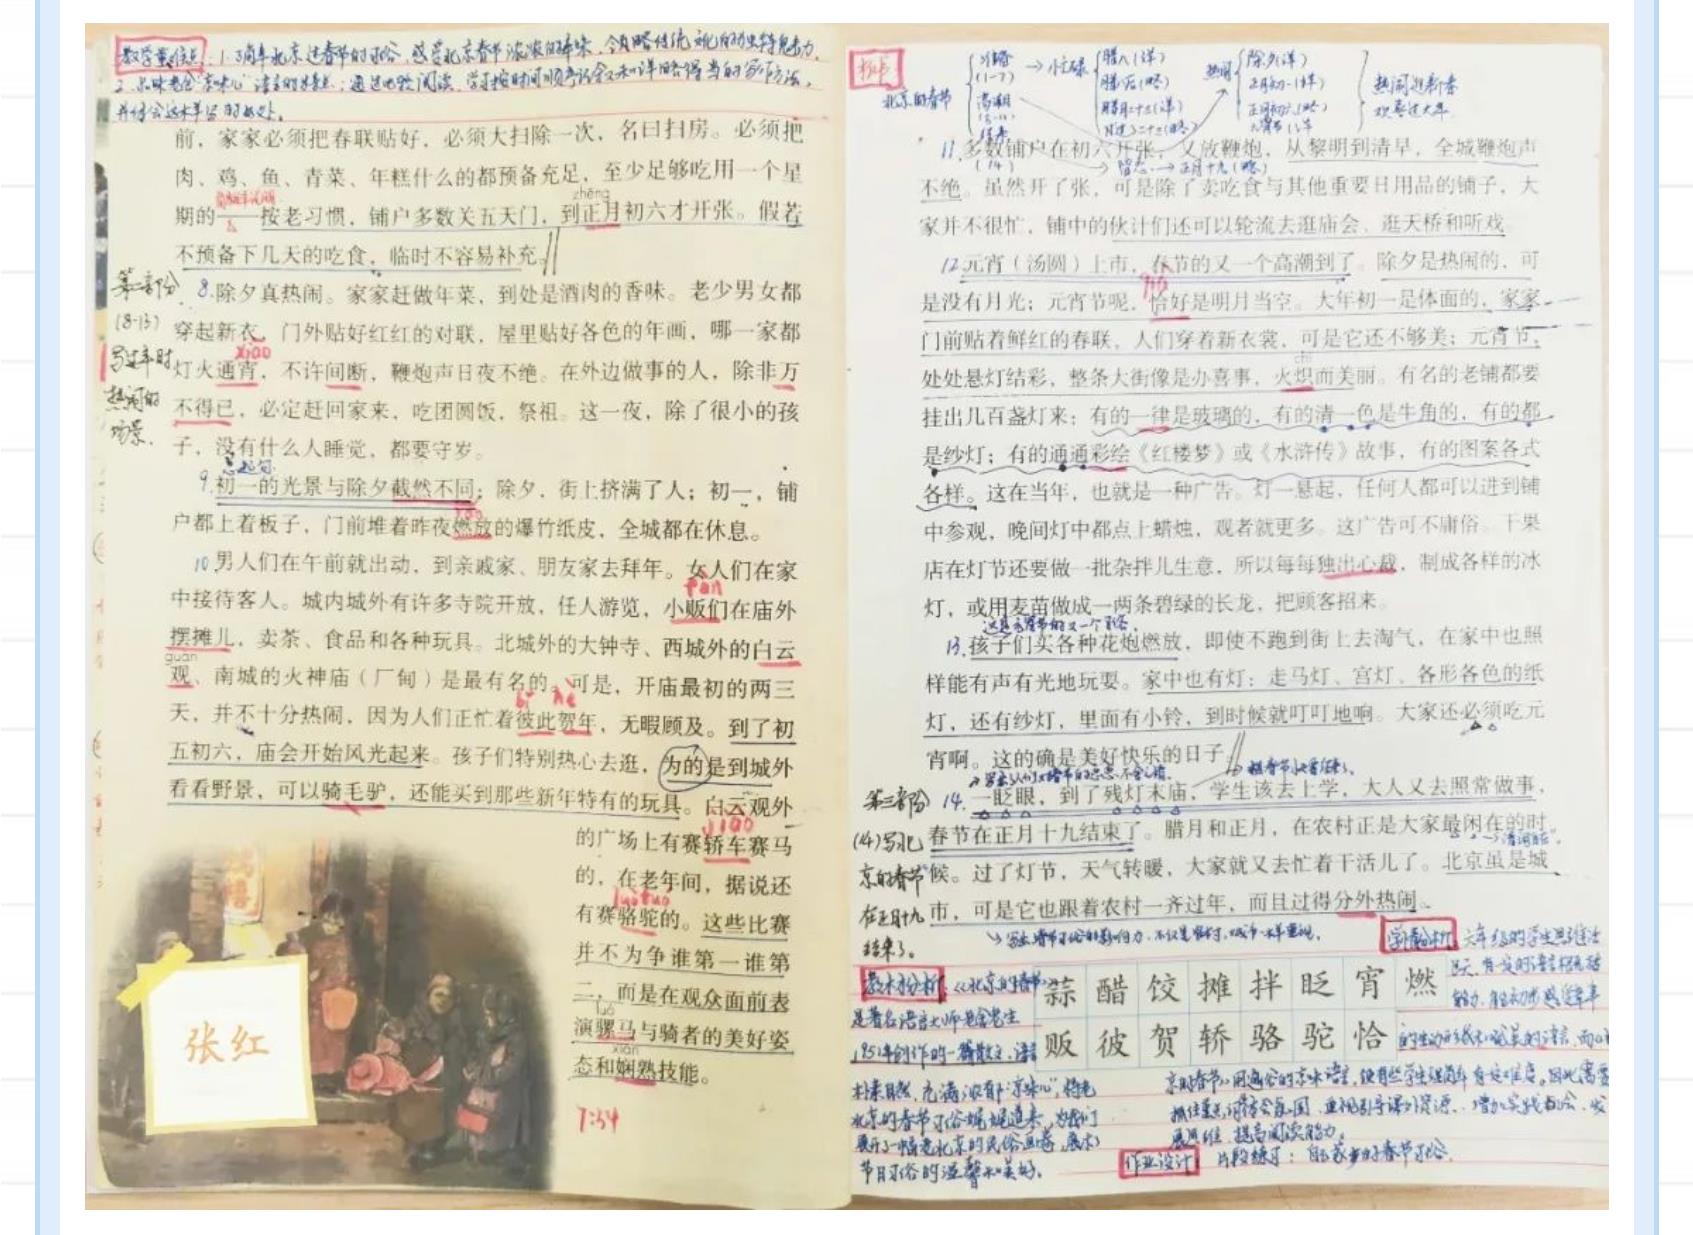 教学重难点：1.了解老北京过春节的习俗，感受北京春节浓浓的年味，领略传统文化的独特魅力。
2.品味老舍"京味儿"语言的特点；通过比较阅读，学习按时间顺序记叙又和详略得当的写作方法，
并体会这样写的好处。
前，家家必须把春联贴好，必须大扫除一次，名曰扫房。必须把
肉、鸡、鱼、青菜、年糕什么的都预备充足，至少足够吃用一个星
zhēng
期的——按老习惯，铺户多数关五天门，到正月初六才开张。假若
不预备下几天的吃食，临时不容易补充。
第二部分
(8-13)
写过年时
热闹的
场景.
8.除夕真热闹。家家赶做年菜，到处是酒肉的香味。老少男女都
穿起新衣，门外贴好红红的对联，屋里贴好各色的年画，哪一家都
xiāo
灯火通宵，不许间断，鞭炮声日夜不绝。在外边做事的人，除非万
不得已，必定赶回家来，吃团圆饭，祭祖。这一夜，除了很小的孩
子，没有什么人睡觉，都要守岁。
总起句
9.初一的光景与除夕截然不同：除夕，街上挤满了人；初一，铺
户都上着板子，门前堆着昨夜燃放的爆竹纸皮，全城都在休息。
10.男人们在午前就出动，到亲戚家、朋友家去拜年。女人们在家
fàn
中接待客人。城内城外有许多寺院开放，任人游览，小贩们在庙外
摆摊儿，卖茶、食品和各种玩具。北城外的大钟寺、西城外的白云
guàn
观、南城的火神庙（厂甸）是最有名的。可是，开庙最初的两三
bǐ hè
天，并不十分热闹，因为人们正忙着彼此贺年，无暇顾及。到了初
五初六，庙会开始风光起来。孩子们特别热心去逛，为的是到城外
看看野景，可以骑毛驴，还能买到那些新年特有的玩具。白云观外
jiào
的广场上有赛轿车赛马
的，在老年间，据说还
luò tuo
有赛骆驼的。这些比赛
并不为争谁第一谁第
二，而是在观众面前表
luó
演骡马与骑者的美好姿
xián
态和娴熟技能。
7:54
张红
板书
北京的春节
序幕
(1-7)
→小忙碌
腊八(详)
腊后(略)
腊月二十三(详)
过了二十三(略)
高潮
(8-13)
热闹
除夕(详)
正月初一(详)
正月初六(略)
元宵节(详)
结尾
(14)
→正月十九(略)
热闹迎新春
欢喜过大年
11.多数铺户在初六开张，又放鞭炮，从黎明到清早，全城鞭炮声
不绝。虽然开了张，可是除了卖吃食与其他重要日用品的铺子，大
家并不很忙，铺中的伙计们还可以轮流去逛庙会、逛天桥和听戏。
12.元宵（汤圆）上市，春节的又一个高潮到了。除夕是热闹的，可
qià
是没有月光；元宵节呢，恰好是明月当空。大年初一是体面的，家家
门前贴着鲜红的春联，人们穿着新衣裳，可是它还不够美；元宵节，
chì
处处悬灯结彩，整条大街像是办喜事，火炽而美丽。有名的老铺都要
挂出几百盏灯来：有的一律是玻璃的，有的清一色是牛角的，有的都
是纱灯；有的通通彩绘《红楼梦》或《水浒传》故事，有的图案各式
各样。这在当年，也就是一种广告。灯一悬起，任何人都可以进到铺
中参观，晚间灯中都点上蜡烛，观者就更多。这广告可不庸俗。干果
店在灯节还要做一批杂拌儿生意，所以每每独出心裁，制成各样的冰
灯，或用麦苗做成一两条碧绿的长龙，把顾客招来。
这是元宵节的又一个习俗。
13.孩子们买各种花炮燃放，即使不跑到街上去淘气，在家中也照
样能有声有光地玩耍。家中也有灯：走马灯、宫灯、各形各色的纸
灯，还有纱灯，里面有小铃，到时候就叮叮地响。大家还必须吃元
宵啊。这的确是美好快乐的日子。
第三部分
(14)写北
京的春节
在正月十九
结束了。
14.一眨眼，到了残灯末庙，学生该去上学，大人又去照常做事，
春节在正月十九结束了。腊月和正月，在农村正是大家最闲在的时
"清闲自在"。
候。过了灯节，天气转暖，大家就又去忙着干活儿了。北京虽是城
市，可是它也跟着农村一齐过年，而且过得分外热闹。
学情分析
六年级的学生思维活
教材分析
《北京的春节》
是著名语言大师老舍先生
1951年创作的一篇散文，语言
朴素自然，充满浓郁"京味儿"，将老
北京的春节习俗娓娓道来，为我们
展开了一幅老北京的民俗画卷，展示了
节日习俗的温馨和美好。
蒜 醋 饺 摊 拌 眨 宵 燃
贩 彼 贺 轿 骆 驼 恰
抓住重点词语体会氛围，重视引导课外资源，增加实践机会，发
展思维，提高阅读能力。
作业设计
片段练习：自己家乡的春节习俗。